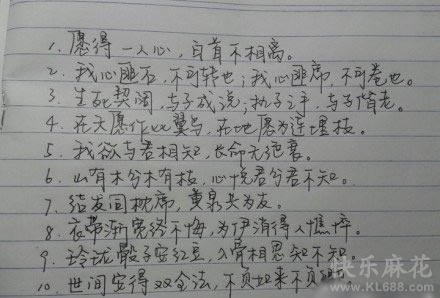 1. 愿得一人心，白首不相离。
2. 我心匪石，不可转也；我心匪席，不可卷也。
3. 生死契阔，与子成说；执子之手，与子偕老。
4. 在天愿作比翼鸟，在地愿为连理枝。
5. 我欲与君相知，长命无绝衰。
6. 山有木兮木有枝，心悦君兮君不知。
7. 结发同枕席，黄泉共为友。
8. 衣带渐宽终不悔，为伊消得人憔悴。
9. 玲珑骰子安红豆，入骨相思知不知。
10. 世间安得双全法，不负如来不负卿。
快乐麻花
www.KL688.com